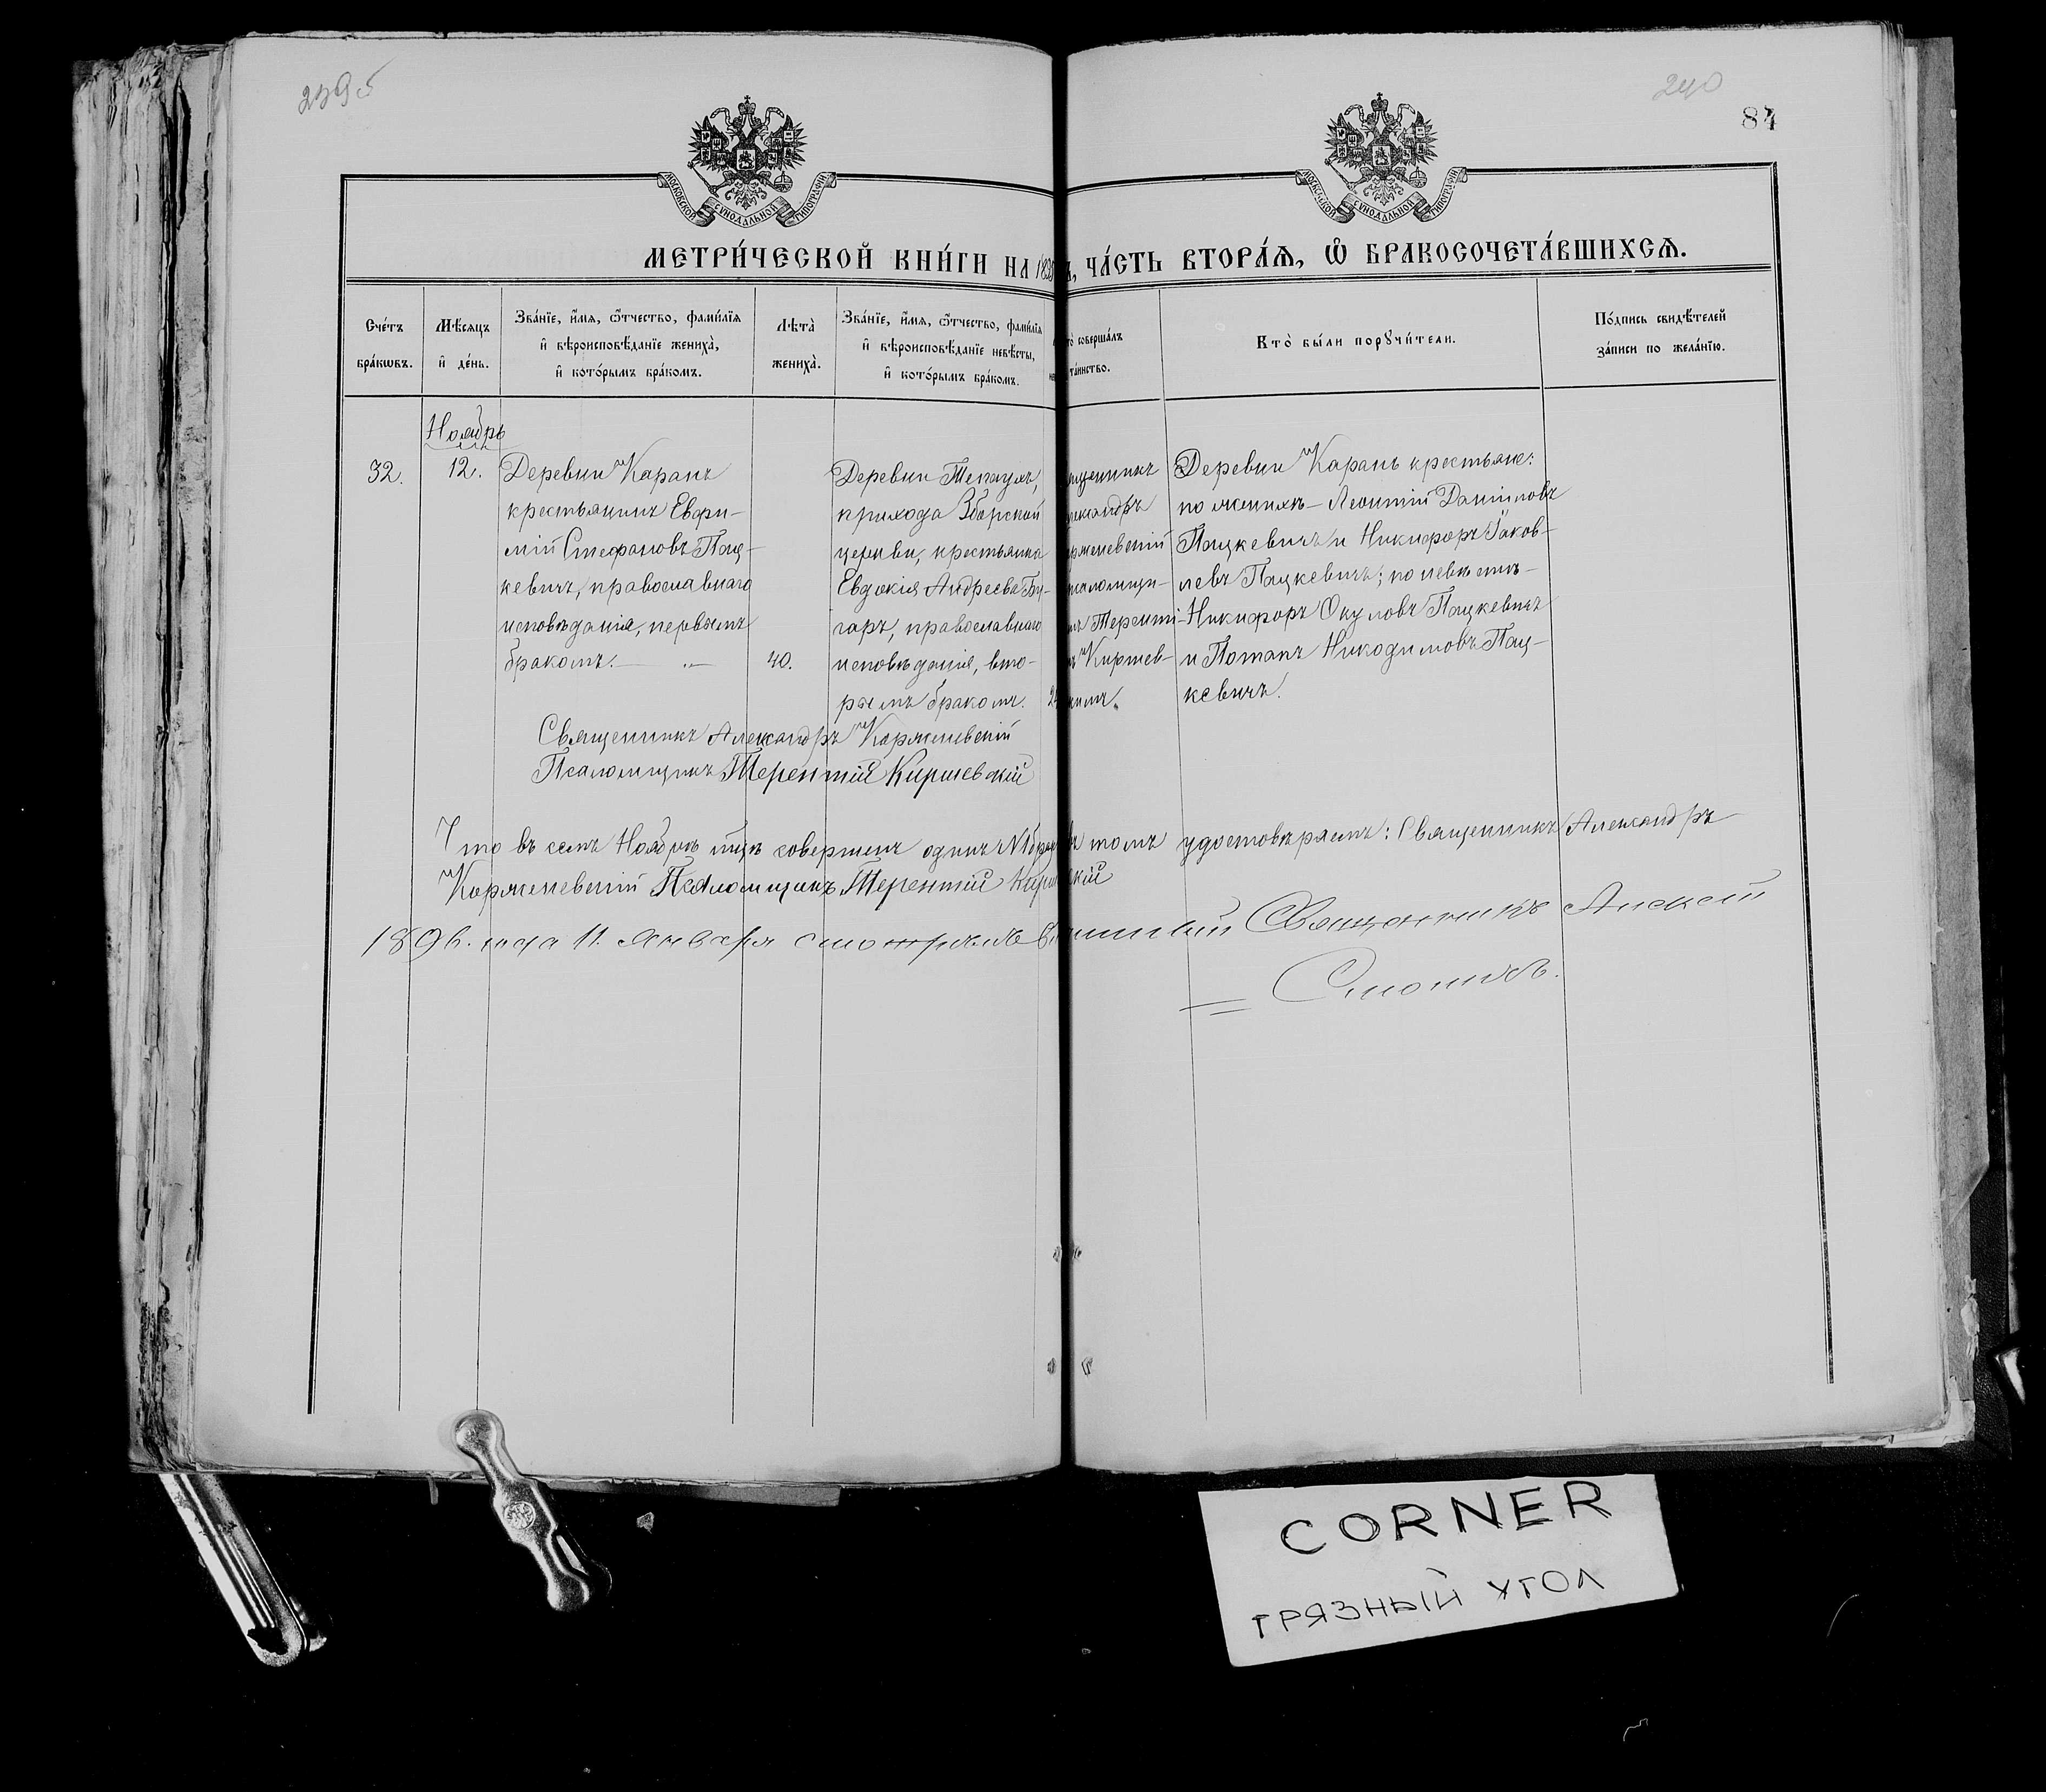 239б
240
84
МОСКОВСКОЙ СѴНОДАЛЬНОЙ ТИПОГРАФІИ
МОСКОВСКОЙ СѴНОДАЛЬНОЙ ТИПОГРАФІИ
МЕТРИ́ЧЕСКОЙ КНИ́ГИ НА 189
ЧА́СТЬ ВТОРА́Ѧ, Ѡ҆ БРАКОСОЧЕТА́ВШИХСѦ.
Сче́тъ
бра́кѡвъ.
Мѣ́сѧцъ
и҆ де́нь.
Зва́нїе, и҆́мѧ, ѻ҆́тчество, фами́лїѧ
и҆ вѣроисповѣ́данїе жениха̀,
и҆ кото́рымъ бра́комъ.
Лѣта̀
жениха̀.
Зва́нїе, и҆́мѧ, ѻ҆́тчество, фами́лїѧ
и҆ вѣроисповѣ́данїе невѣ́сты,
и҆ кото́рымъ бра́комъ.
соверша́лъ
та́инство.
Кто̀ бы́ли порꙋчи́тели.
По́дпись свидѣ́телей
за́писи по жела́нїю.
Ноябрь
32.
12.
Деревни Каранъ
крестьянинъ Евфи-
мій Стефановъ Пац-
кевичъ, православнаго
исповѣданія, первымъ
бракомъ. — „ —
40.
Деревни
прихода Зборской
церкви, крестьянка
Евдокія Андреева Бу-
гаръ, православнаго
исповѣданія, вто-
рымъ бракомъ.
ященникъ
лександръ
рженевскій
саломщи-
ъ Терентій
Киршев-
Деревни Каранъ крестьяне:
по женихѣ — Леонтій Даніиловъ
Пацкевичъ и Никифоръ Іаков-
левъ Пацкевичъ; по невѣстѣ —
Никифоръ Окуловъ Пацкевичъ
и Потапъ Никодимовъ Пац-
кевичъ.
Священникъ Александръ Корженевскій
Псаломщикъ Терентій Киршевскій
Что въ семъ Ноябрѣ м-цѣ совершенъ одинъ №1 бракъ въ томъ удостовѣряемъ: Священникъ Александръ
Корженевскій Псаломщикъ Терентій Киршевскій
1896. года 11. Января смотрѣлъ Священникъ Алексій
CORNER
ГРЯЗНЫЙ УГОЛ